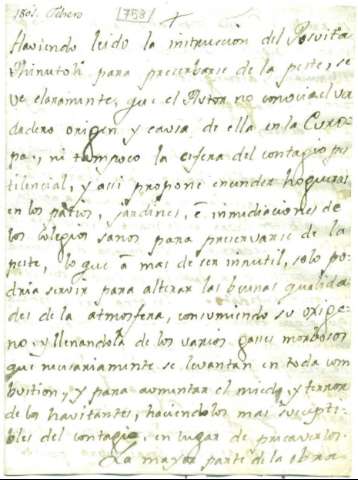 1801. Febrero
[758]
Haviendo leido la instruccion del Jesuita
para precerbarse de la peste, se
ve claramente, que el Autor no conocia el ver
dadero origen y causa de ella en la Euro
pa, ni tampoco la esfera del contagio pes
tilencial, y assi propone encender hogueras
en los patios, jardines, è inmediaciones de
los Colegios sanos para preservarse de la
peste, lo que à mas de ser innutil, solo po
dria servir para alterar las buenas qualida
des de la atmosfera, consumiendo su oxige
no, y llenandola de los varios gases morbosos
que necesariamente se levantan en toda com
bustion, y para aumentar el miedo, y terror
de los havitantes, haciendolos mas suscepti
bles del contagio, en lugar de precaverlos.
La mayor parte de la